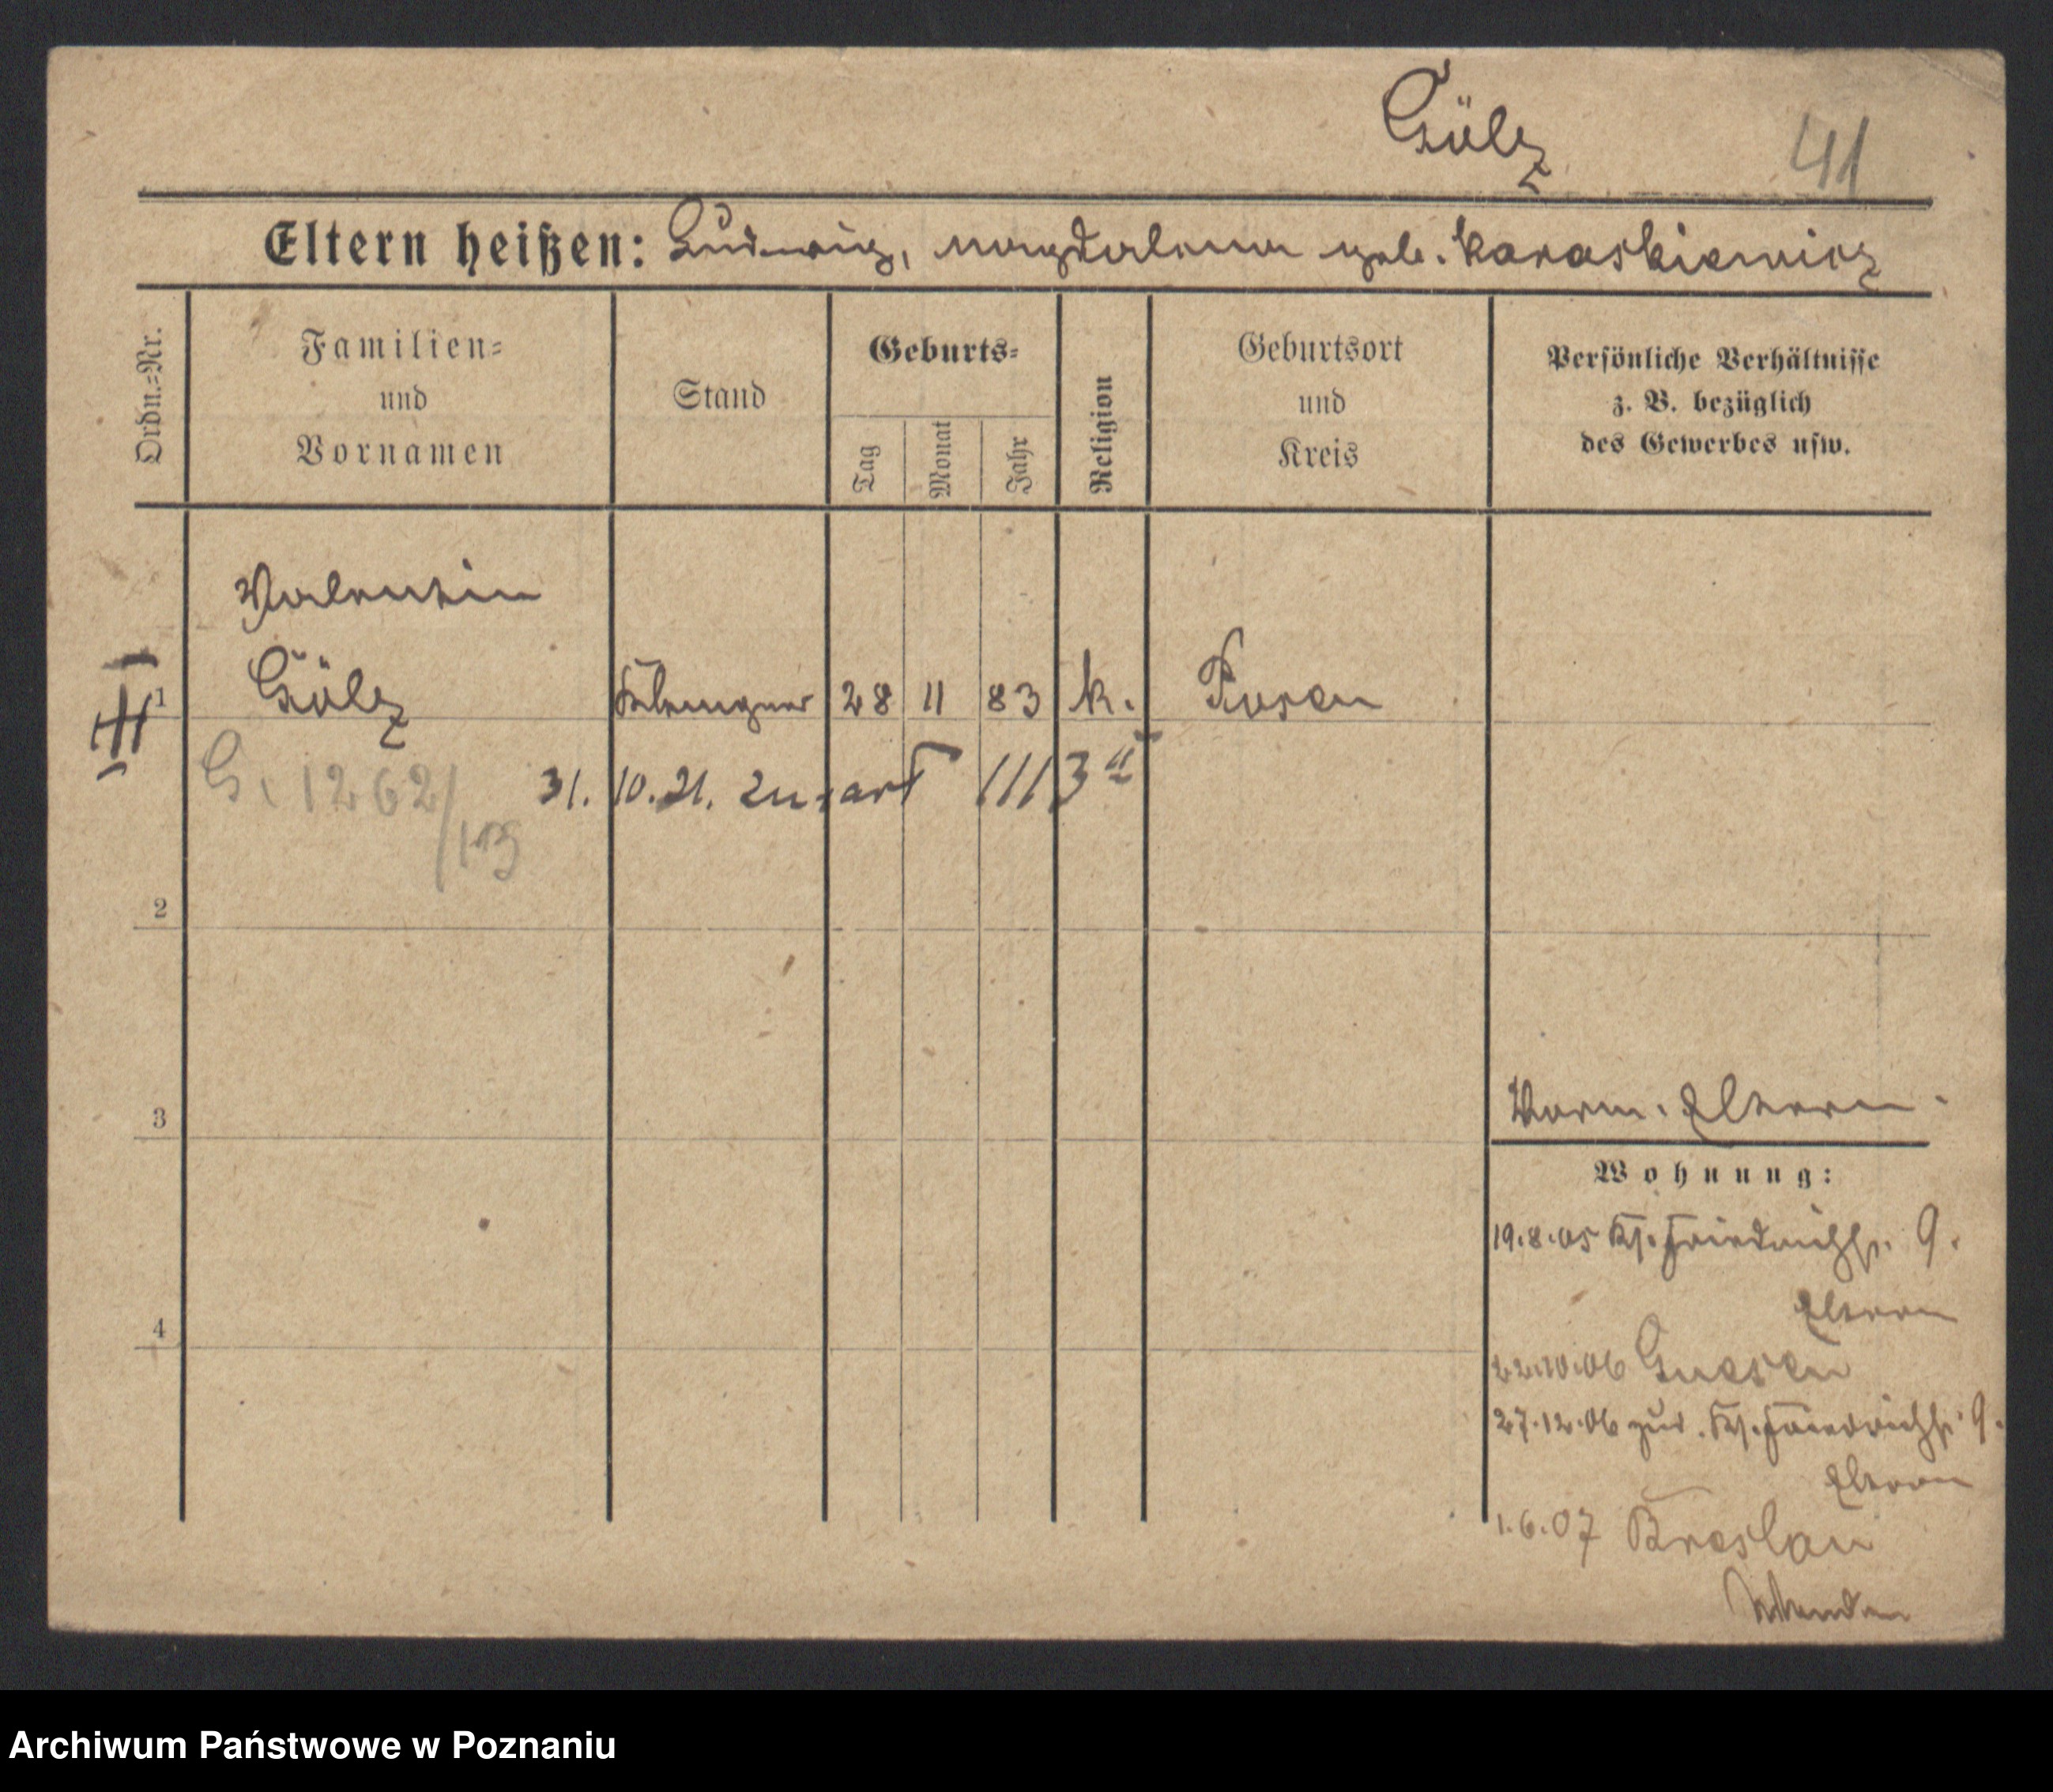 Gölz 41
Eltern heißen: Ludwig, Magdalena geb. Karaskiewicz
Ordn.=Nr.
Familien=
und
Vornamen
Stand
Geburts=
Tag
Monat
Jahr
Religion
Geburtsort
und
Kreis
Persönliche Verhältnisse
z. B. bezüglich
des Gewerbes usw.
Valentin
1 Gölz 28 11 83 k. Posen
G. 1262/
31. 10. 21.
2
3
Vorm. Eltern.
Wohnung:
19.8.05 Kl. Friedrichstr. 9.
Eltern
4
22.10.06 Gnesen
27.12.06 zur. Kl. Friedrichstr. 9.
Eltern
1.6.07 Breslau
Archiwum Państwowe w Poznaniu